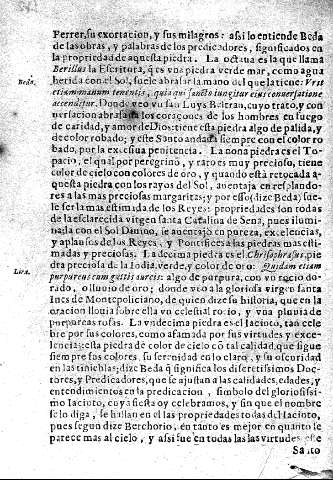 Ferrer, su exortacion, y sus milagros: assi lo entiende Beda
de las obras, y palabras de los predicadores, significados en
la propriedad de aquesta piedra. La octaua es la que llama
Berillus la Escritura, q̃ es vna piedra verde mar, como agua
Beda.
herida con el Sol, suele abrasar la mano del que la tiene: Vret
etiam manum tenentis, quia qui sancto iungitur eius conuersatione
accenditur. Donde veo yo a san Luys Beltran, cuyo trato, y con
uersacion abrasa los coraçones de los hombres en fuego
de caridad, y amor de Dios: tiene esta piedra algo de palida, y
de color robado; y este Santo andaua siempre con el color ro
bado, por la excessiua penitencia. La nona piedra es el To-
pacio, el qual por peregrino, y raro es muy preciso, tiene
color de cielo con colores de oro, y quando està retocada a-
questa piedra con los rayos del Sol, auentaja en resplando-
res a las mas preciosas margaritas; y por esso (dize Beda) sue-
le ser la mas estimada de los Reyes: propriedades son todas
de la esclarecida virgen santa Catalina de Sena, pues ilumi-
nada con el Sol Diuino, se auentajò en pureza, excelencias,
y aplausos de los Reyes, y Pontifices a las piedras mas esti-
madas y preciosas. La decima piedra es el Chrisophrasus, pie
dra preciosa de la India, verde, y color de oro: Quidam etiam
Lira.
purpureum cum guttis aureis: algo de purpura, con vn rocio do-
rado, o lluuio de oro; donde veo a la gloriosa virgen santa
Ines de Montepoliciano, de quien dize su historia, que en la
oracion llouia sobre ella vn celestial rocio, y vna pluuia de
purpureas rosas. La vndecima piedra es el Iacinto, tan cele
bre por sus colores, como afamada por sus virtudes y exce-
lencias; es esta piedra de color de cielo cõ tal calidad, que sigue
siempre sus colores, su serenidad en lo claro, y su oscuridad
en las tinieblas; dize Beda q̃ significa los discretissimos Doc-
tores, y Predicadores, que se ajustan a las calidades, edades, y
entendimientos en la predicacion, simbolo del gloriosissi-
mo Iacinto, cuya fiesta oy celebramos, y sin que el nombre
se lo diga, se hallan en el las propriedades todas del Iacinto,
pues segun dize Berchorio, en tanto es mejor en quanto se
parece mas al cielo, y assi fue en todas las virtudes este
Santo